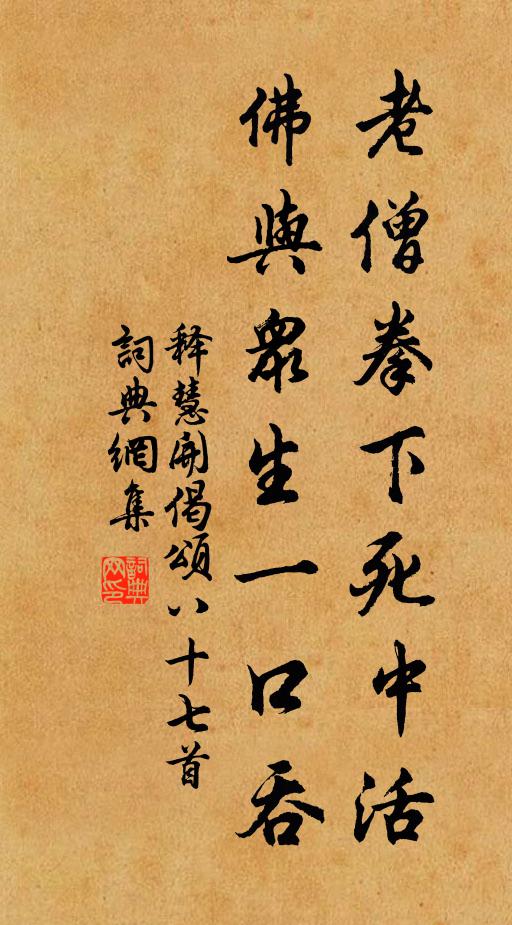 老僧拳下死中活
佛與眾生一口吞
释慧開偈頌八十七首
詞典網集
詞典网印